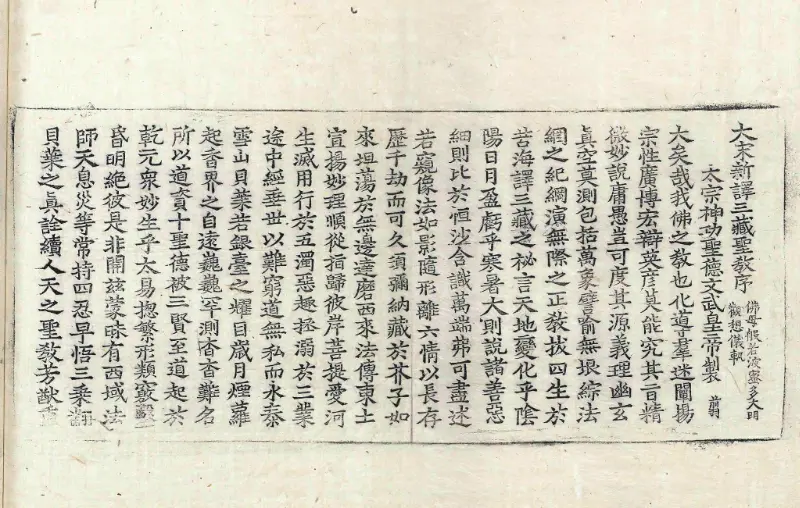 大宋新譯三藏聖教序
佛母般若波蜜多大明
觀想儀軌
太宗神功聖德文武皇帝製
大矣哉我佛之教也化導羣迷闡揚
宗性廣博宏辯英彥莫能究其旨精
微妙說庸愚豈可度其源義理幽玄
真空莫測包括萬象譬喻無垠綜法
網之紀綱演無際之正教拔四生於
苦海譯三藏之祕言天地變化乎陰
陽日月盈虧乎寒暑大則說諸善惡
細則比於恒沙含識萬端弗可盡述
若窺像法如影隨形離六情以長存
歷千劫而可久須彌納藏於芥子如
來坦蕩於無邊達磨西來法傳東土
宣揚妙理順從指歸彼岸菩提愛河
生滅用行於五濁惡趣拯溺於三業
途中經垂世以難窮道無私而永泰
雪山貝葉若銀臺之耀目歲月煙蘿
起香界之自遠巍巍罕測杳杳難名
所以道資十聖德被三賢至道起於
乾元衆妙生乎太易揔繁形類竅鑿
昏明絕彼是非開茲蒙昧有西域法
師天息災等常持四忍早悟三乘翻
貝葉之真詮續人天之聖教芳猷重